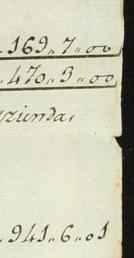 169,,7,,00
470,,3,,00
azienda,
941,,6,,01